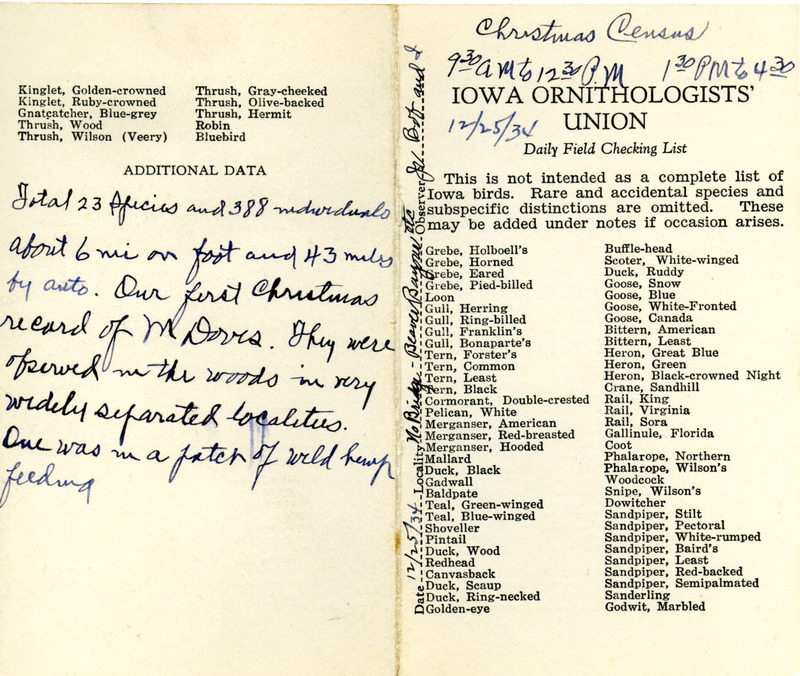 Kinglet, Golden-crowned
Kinglet, Ruby-crowned
Gnatcatcher, Blue-grey
Thrush, Wood
Thrush, Wilson (Veery)
Thrush, Gray-cheeked
Thrush, Olive-backed
Thrush, Hermit
Robin
Bluebird
ADDITIONAL DATA
Total 23 Species and 388 individuals
about 6 mi on foot and 43 miles
by auto. Our first Christmas
record of M Doves. They were
observed in the woods in very
widely separated localities.
One was in a patch of wild hemp
feeding
Date 12/25/34 Locality No Bridge - Beaver Bayou etc Observer Bott and I
Christmas Census
9 30 A M to 12 30 P.M 1 30 PM to 4 30
IOWA ORNITHOLOGISTS'
UNION
12/25/34
Daily Field Checking List
This is not intended as a complete list of
Iowa birds. Rare and accidental species and
subspecific distinctions are omitted. These
may be added under notes if occasion arises.
Grebe, Holboell's
Grebe, Horned
Grebe, Eared
Grebe, Pied-billed
Loon
Gull, Herring
Gull, Ring-billed
Gull, Franklin's
Gull, Bonaparte's
Tern, Forster's
Tern, Common
Tern, Least
Tern, Black
Cormorant, Double-crested
Pelican, White
Merganser, American
Merganser, Red-breasted
Merganser, Hooded
Mallard
Duck, Black
Gadwall
Baldpate
Teal, Green-winged
Teal, Blue-winged
Shoveller
Pintail
Duck, Wood
Redhead
Canvasback
Duck, Scaup
Duck, Ring-necked
Golden-eye
Buffle-head
Scoter, White-winged
Duck, Ruddy
Goose, Snow
Goose, Blue
Goose, White-Fronted
Goose, Canada
Bittern, American
Bittern, Least
Heron, Great Blue
Heron, Green
Heron, Black-crowned Night
Crane, Sandhill
Rail, King
Rail, Virginia
Rail, Sora
Gallinule, Florida
Coot
Phalarope, Northern
Phalarope, Wilson's
Woodcock
Snipe, Wilson's
Dowitcher
Sandpiper, Stilt
Sandpiper, Pectoral
Sandpiper, White-rumped
Sandpiper, Baird's
Sandpiper, Least
Sandpiper, Red-backed
Sandpiper, Semipalmated
Sanderling
Godwit, Marbled